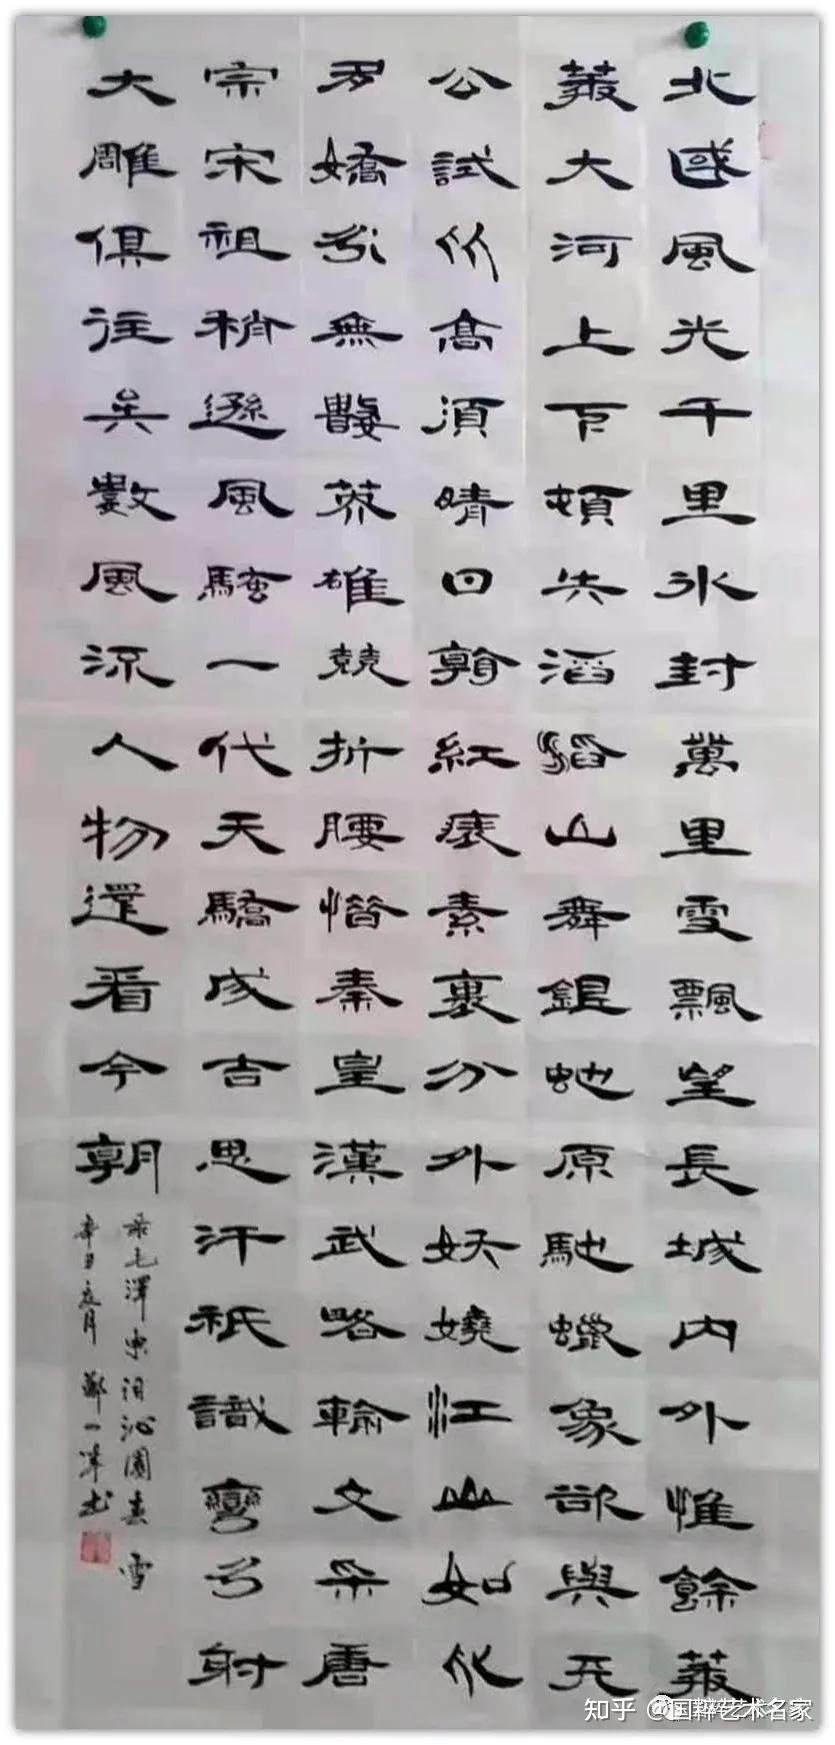 北國風光千里氷封萬里雪飄望長城内外惟餘莽
莽大河上下頓失滔滔山舞銀蛇原馳蠟象欲與天
公試比高須晴日看紅裝素裹分外妖嬈江山如此
多嬌引無數英雄競折腰惜秦皇漢武略輸文采唐
宗宋祖稍遜風騷一代天驕成吉思汗祇識彎弓射
大雕俱往矣數風流人物還看今朝
录毛澤東詞沁園春雪
辛丑夏月鄭一书
知乎 @国粹艺术名家